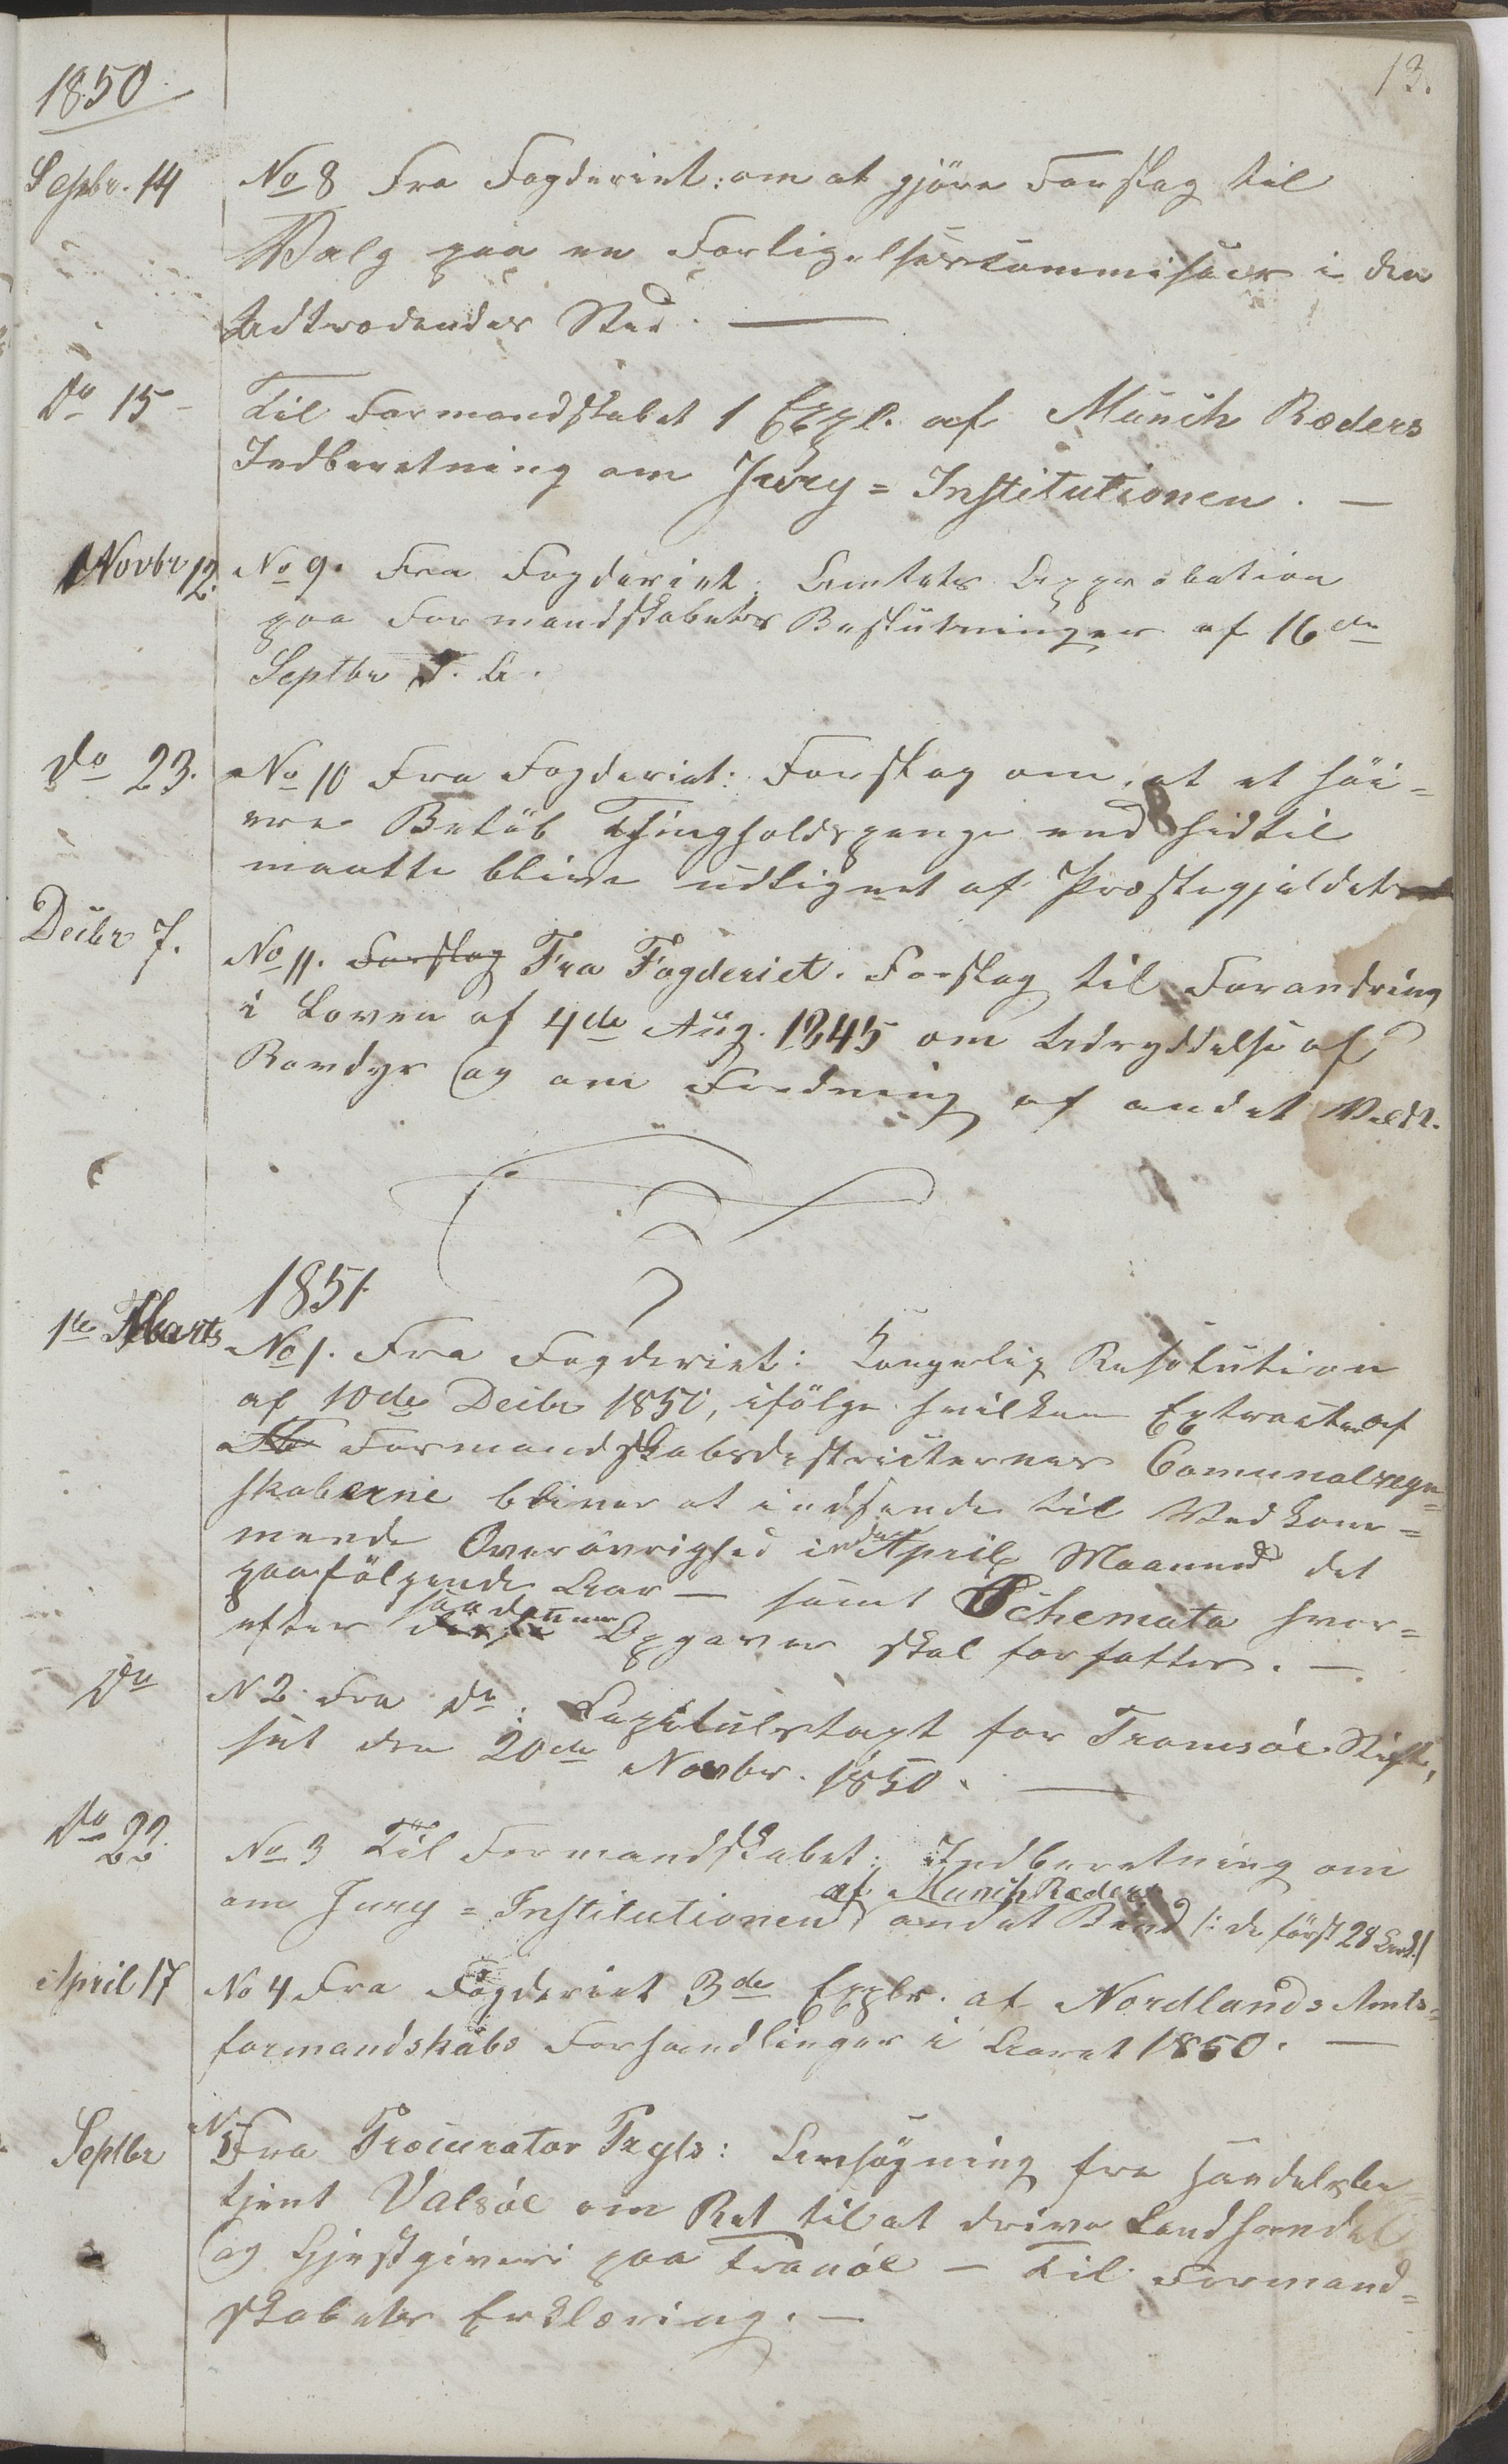 13.
1850
Septbr. 14 No 8 Fra Fogderiet: om at gjöre Forslag til
Valg paa en Forligelsescommisair i den
Udtrædendes Sted. —
Do 15 – Til Formandskabet 1 Expl. af Münch Ræders
Indberetning om Jury = Institutionen. —
Novbr 12. No 9. Fra Fogderiet. Amtets Approbation
paa Formandskabets Beslutninger af 16de
Septbr d. A.
Do 23. No 10 Fra Fogderiet: Forslag om, at et höi=
ere Belöb Thingholdspenge end hidtil
maatte blive udlignet af Præstegjeldet
Decbr 7. No 11. Forslag Fra Fogderiet. Forslag til Forandring
i Loven af 4de Aug. 1845 om Udryddelse af
Rovdyr og om Fredning af andet Vildt.
1851
1ste Marts No 1. Fra Fogderiet: Kongelig Resolution
af 10de Decbr 1850, ifölge hvilken Extracter af
Formandskabsdistricternes Comunalregn=
skaberne bliver at indsende til Vedkom=
mende Overövrighed inden April Maaned det
paafölgende Aar — samt Schemata hvor=
efter disse saadanne Opgaver skal forfattes. —
Do N 2. Fra Do: Capitulstaxt for Tromsöe Stift,
sat den 20de Novbr. 1850. —
Do 22. No 3 Til Formandskabet: Indberetning om
om Jury = Institutionen af Munch Ræder andet Bind /: de först 28 Ark :/
April 17 No 4 Fra Fogderiet 3de Explr. af Nordlands Amts=
formandskabs Forhandlinger i Aaret 1850. —
Septbr N 5 Fra Procurator Frgls: Ansögning fra Handelsbe=
tjent Valsöe om Ret til at drive Landhandel
og Gjestgiveri paa Tranöe — Til Formand=
skabets Erklæring. —